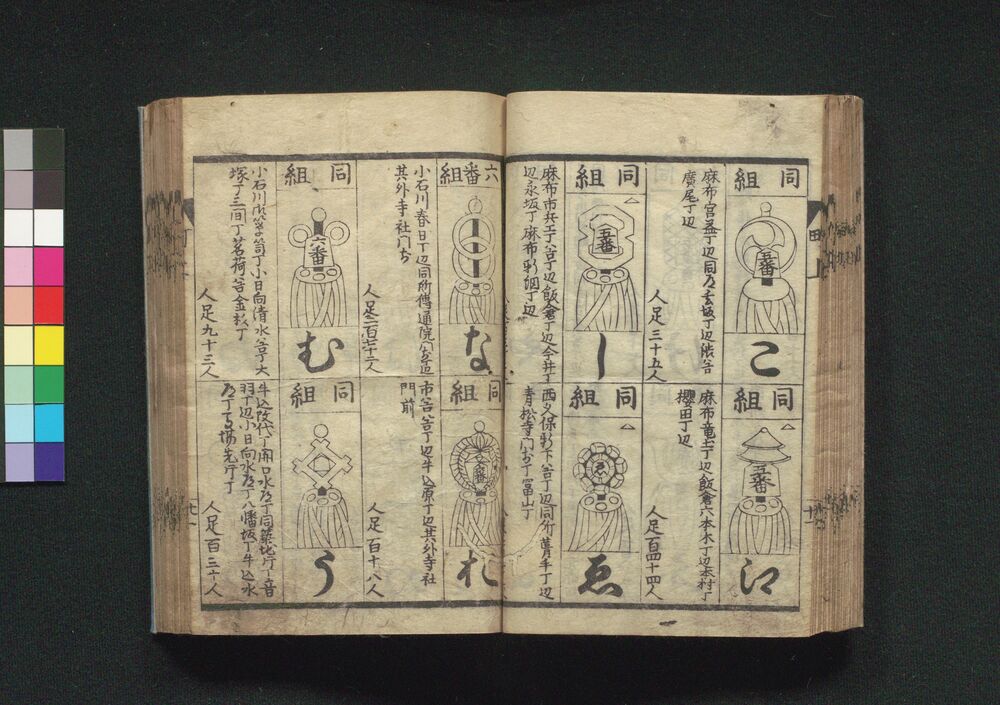 同組
五番
こ
麻布宮益丁辺同所玄坂丁辺渋谷
廣尾丁辺
人足三十五人
同組
五番
江
麻布竜土丁辺飯倉六本木丁辺本村丁
櫻田丁辺
人足百四十四人
同組
五番
し
麻布市兵エ丁谷丁辺飯倉丁辺今井丁
辺永坂丁麻布新網丁辺
同組
ゑ
西久保新下谷丁辺同所
青松寺門前丁富山丁
六番組
な
小石川春日丁辺同所傳通院門前辺
其外寺社門前
人足
同組
六番
れ
市谷谷丁辺牛込原丁辺其外寺社
門前
人足百十八人
同組
六番
む
小石川
丁小日向清水谷丁大
塚丁三四丁茗荷谷金杉丁
人足九十三人
同組
う
牛込
水道丁同築地片丁音
羽丁辺小日向水道丁八幡坂丁牛込水
道丁馬場先片丁
人足百三十人